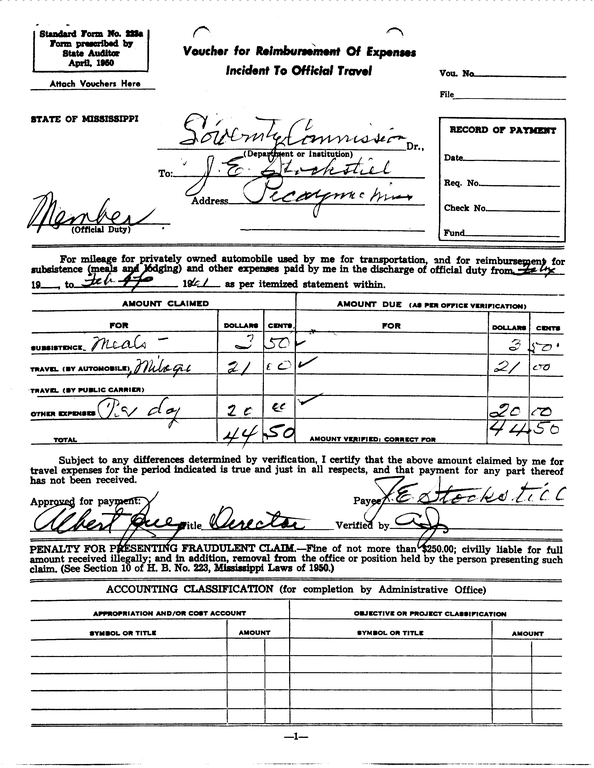 Standard Form No. 223a
Form prescribed by
State Auditor
April, 1950
Attach Vouchers Here
Voucher for Reimbursement Of Expenses
Incident To Official Travel
Vou. No.
File
STATE OF MISSISSIPPI
Sovernty Commission Dr.,
(Department or Institution)
To: J. E. Stockstill
Address Picayune Miss
Member
(Official Duty)
RECORD OF PAYMENT
Date
Req. No.
Check No.
Fund
For mileage for privately owned automobile used by me for transportation, and for reimbursement for
subsistence (meals and lodging) and other expenses paid by me in the discharge of official duty from
19 , to Feb 19 as per itemized statement within.
AMOUNT CLAIMED AMOUNT DUE (AS PER OFFICE VERIFICATION)
FOR DOLLARS CENTS FOR DOLLARS CENTS
SUBSISTENCE, Meals - 3 50 3 50
TRAVEL (BY AUTOMOBILE), Milage 21 00 21 00
TRAVEL (BY PUBLIC CARRIER)
OTHER EXPENSES Per day 20 00 20 00
TOTAL 44.50 AMOUNT VERIFIED; CORRECT FOR 44.50
Subject to any differences determined by verification, I certify that the above amount claimed by me for
travel expenses for the period indicated is true and just in all respects, and that payment for any part thereof
has not been received.
Approved for payment: Payee J. E. Stockstill
Albert Title Director Verified by
PENALTY FOR PRESENTING FRAUDULENT CLAIM.—Fine of not more than $250.00; civilly liable for full
amount received illegally; and in addition, removal from the office or position held by the person presenting such
claim. (See Section 10 of H. B. No. 223, Mississippi Laws of 1950.)
ACCOUNTING CLASSIFICATION (for completion by Administrative Office)
APPROPRIATION AND/OR COST ACCOUNT OBJECTIVE OR PROJECT CLASSIFICATION
SYMBOL OR TITLE AMOUNT SYMBOL OR TITLE AMOUNT
—1—